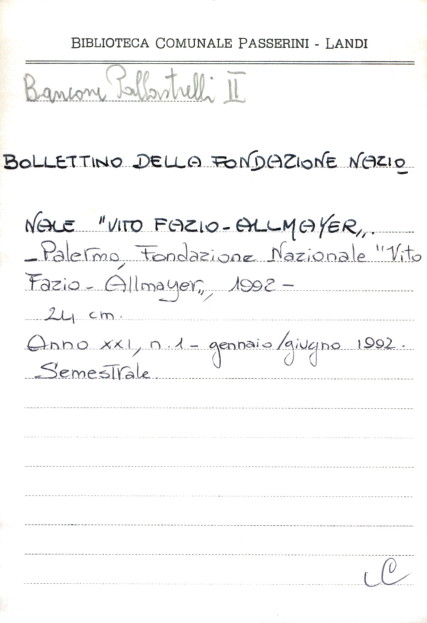 BIBLIOTECA COMUNALE PASSERINI - LANDI
Bancone Pallastrelli II
BOLLETTINO DELLA FONDAZIONE NAZIO
NALE "VITO FAZIO-ALLMAYER„.
-Palermo, Fondazione Nazionale "Vito
Fazio-Allmayer„, 1992-
24 cm.
Anno XXI, n.1- gennaio/giugno 1992.
Semestrale